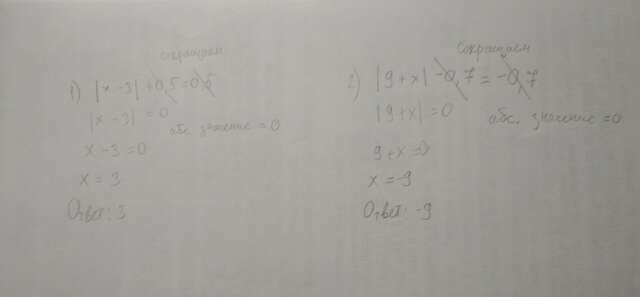 сокращаем
1) |x-3|+0,5=0,5
|x-3|=0
абс. значение =0
x-3=0
x=3
Ответ: 3
Сокращаем
2) |9+x|-0,7=-0,7
|9+x|=0
абс. значение =0
9+x=0
x=-9
Ответ: -9